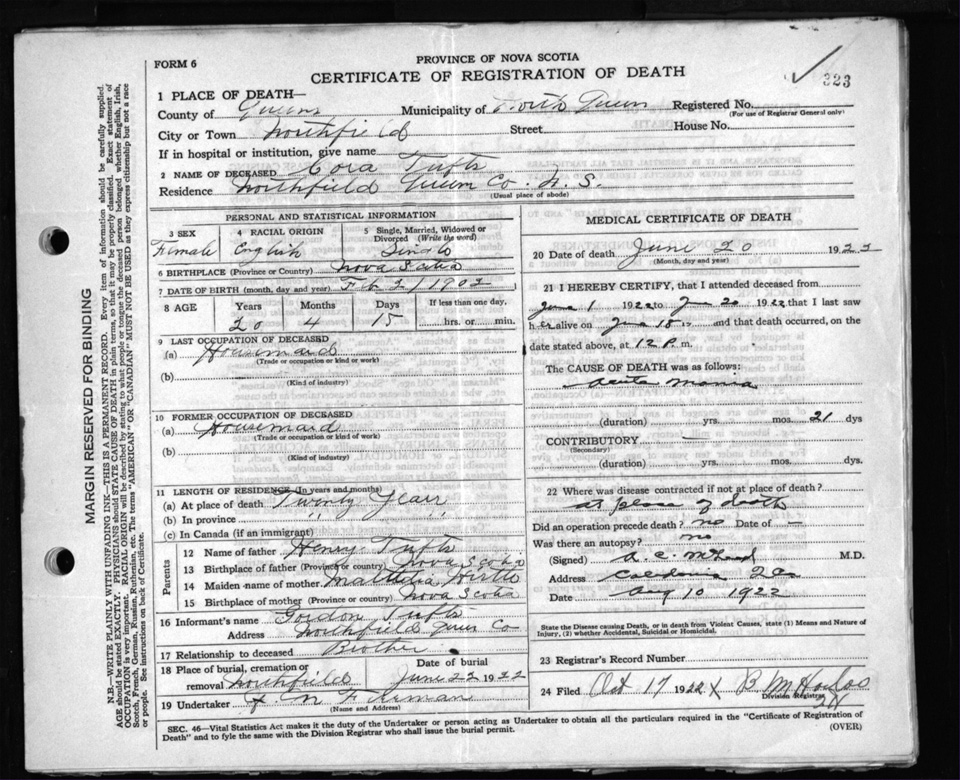 FORM 6
PROVINCE OF NOVA SCOTIA
CERTIFICATE OF REGISTRATION OF DEATH
323
1 PLACE OF DEATH—
County of Queens Municipality of North Queens Registered No.
(For use of Registrar General only)
City or Town Northfield Street House No.
If in hospital or institution, give name
2 NAME OF DECEASED Cora Tufts
Residence Northfield Queens Co. N. S.
(Usual place of abode)
PERSONAL AND STATISTICAL INFORMATION
3 SEX 4 RACIAL ORIGIN 5 Single, Married, Widowed or Divorced (Write the word)
Female English Single
6 BIRTHPLACE (Province or Country) Nova Scotia
7 DATE OF BIRTH (month, day and year) Feb 1902
8 AGE Years Months Days If less than one day,
20 4 15 hrs. or min.
9 LAST OCCUPATION OF DECEASED
(a) Housemaid
(Trade or occupation or kind or work)
(b)
(Kind of industry)
10 FORMER OCCUPATION OF DECEASED
(a) Housemaid
(Trade or occupation or kind of work)
(b)
(Kind of industry)
11 LENGTH OF RESIDENCE (In years and months)
(a) At place of death Twenty Years
(b) In province " "
(c) In Canada (if an immigrant)
Parents
12 Name of father Henry Tufts
13 Birthplace of father (Province or country) Nova Scotia
14 Maiden name of mother Matilda Hirtle
15 Birthplace of mother (Province or country) Nova Scotia
16 Informant's name Gordon Tufts
Address Northfield Queens Co
17 Relationship to deceased Brother
18 Place of burial, cremation or removal Northfield Date of burial June 22 1922
19 Undertaker Freeman
(Name and Address)
MEDICAL CERTIFICATE OF DEATH
20 Date of death June 20 192
(Month, day and year)
21 I HEREBY CERTIFY, that I attended deceased from
June 1 1922 to June 20 1922 that I last saw
her alive on June 18 and that death occurred, on the
date stated above, at 12 P. m.
The CAUSE OF DEATH was as follows:
Acute Mania
(duration) yrs. mos. 21 dys
CONTRIBUTORY —
(Secondary)
(duration) yrs. mos. dys.
22 Where was disease contracted if not at place of death?
at place of death
Did an operation precede death? no Date of —
Was there an autopsy? no
(Signed) A. C. M.D.
Address Caledonia
Date Aug 10 1922
State the Disease causing Death, or in death from Violent Causes, state (1) Means and Nature of Injury, (2) whether Accidental, Suicidal or Homicidal.
23 Registrar's Record Number
24 Filed Oct 17 1922 X
Division Registrar
SEC. 46—Vital Statistics Act makes it the duty of the Undertaker or person acting as Undertaker to obtain all the particulars required in the "Certificate of Registration of
Death" and to fyle the same with the Division Registrar who shall issue the burial permit.
(OVER)
MARGIN RESERVED FOR BINDING
N.B.—WRITE PLAINLY WITH UNFADING INK—THIS IS A PERMANENT RECORD. Every item of information should be carefully supplied.
AGE should be stated EXACTLY. PHYSICIANS should STATE CAUSE OF DEATH in plain terms, so that it may be properly classified. Exact statement of
OCCUPATION is very important. RACIAL ORIGIN will be described by stating to what people or tongue the deceased person belonged whether English, Irish,
Scotch, French, German, Russian, Ruthenian, etc. The terms "AMERICAN" OR "CANADIAN" MUST NOT BE USED as they express citizenship but not a race
or people. See instructions on back of Certificate.